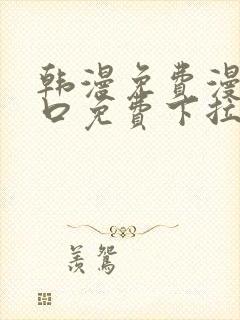 韩漫免费漫
口免费下拉
羡鸳